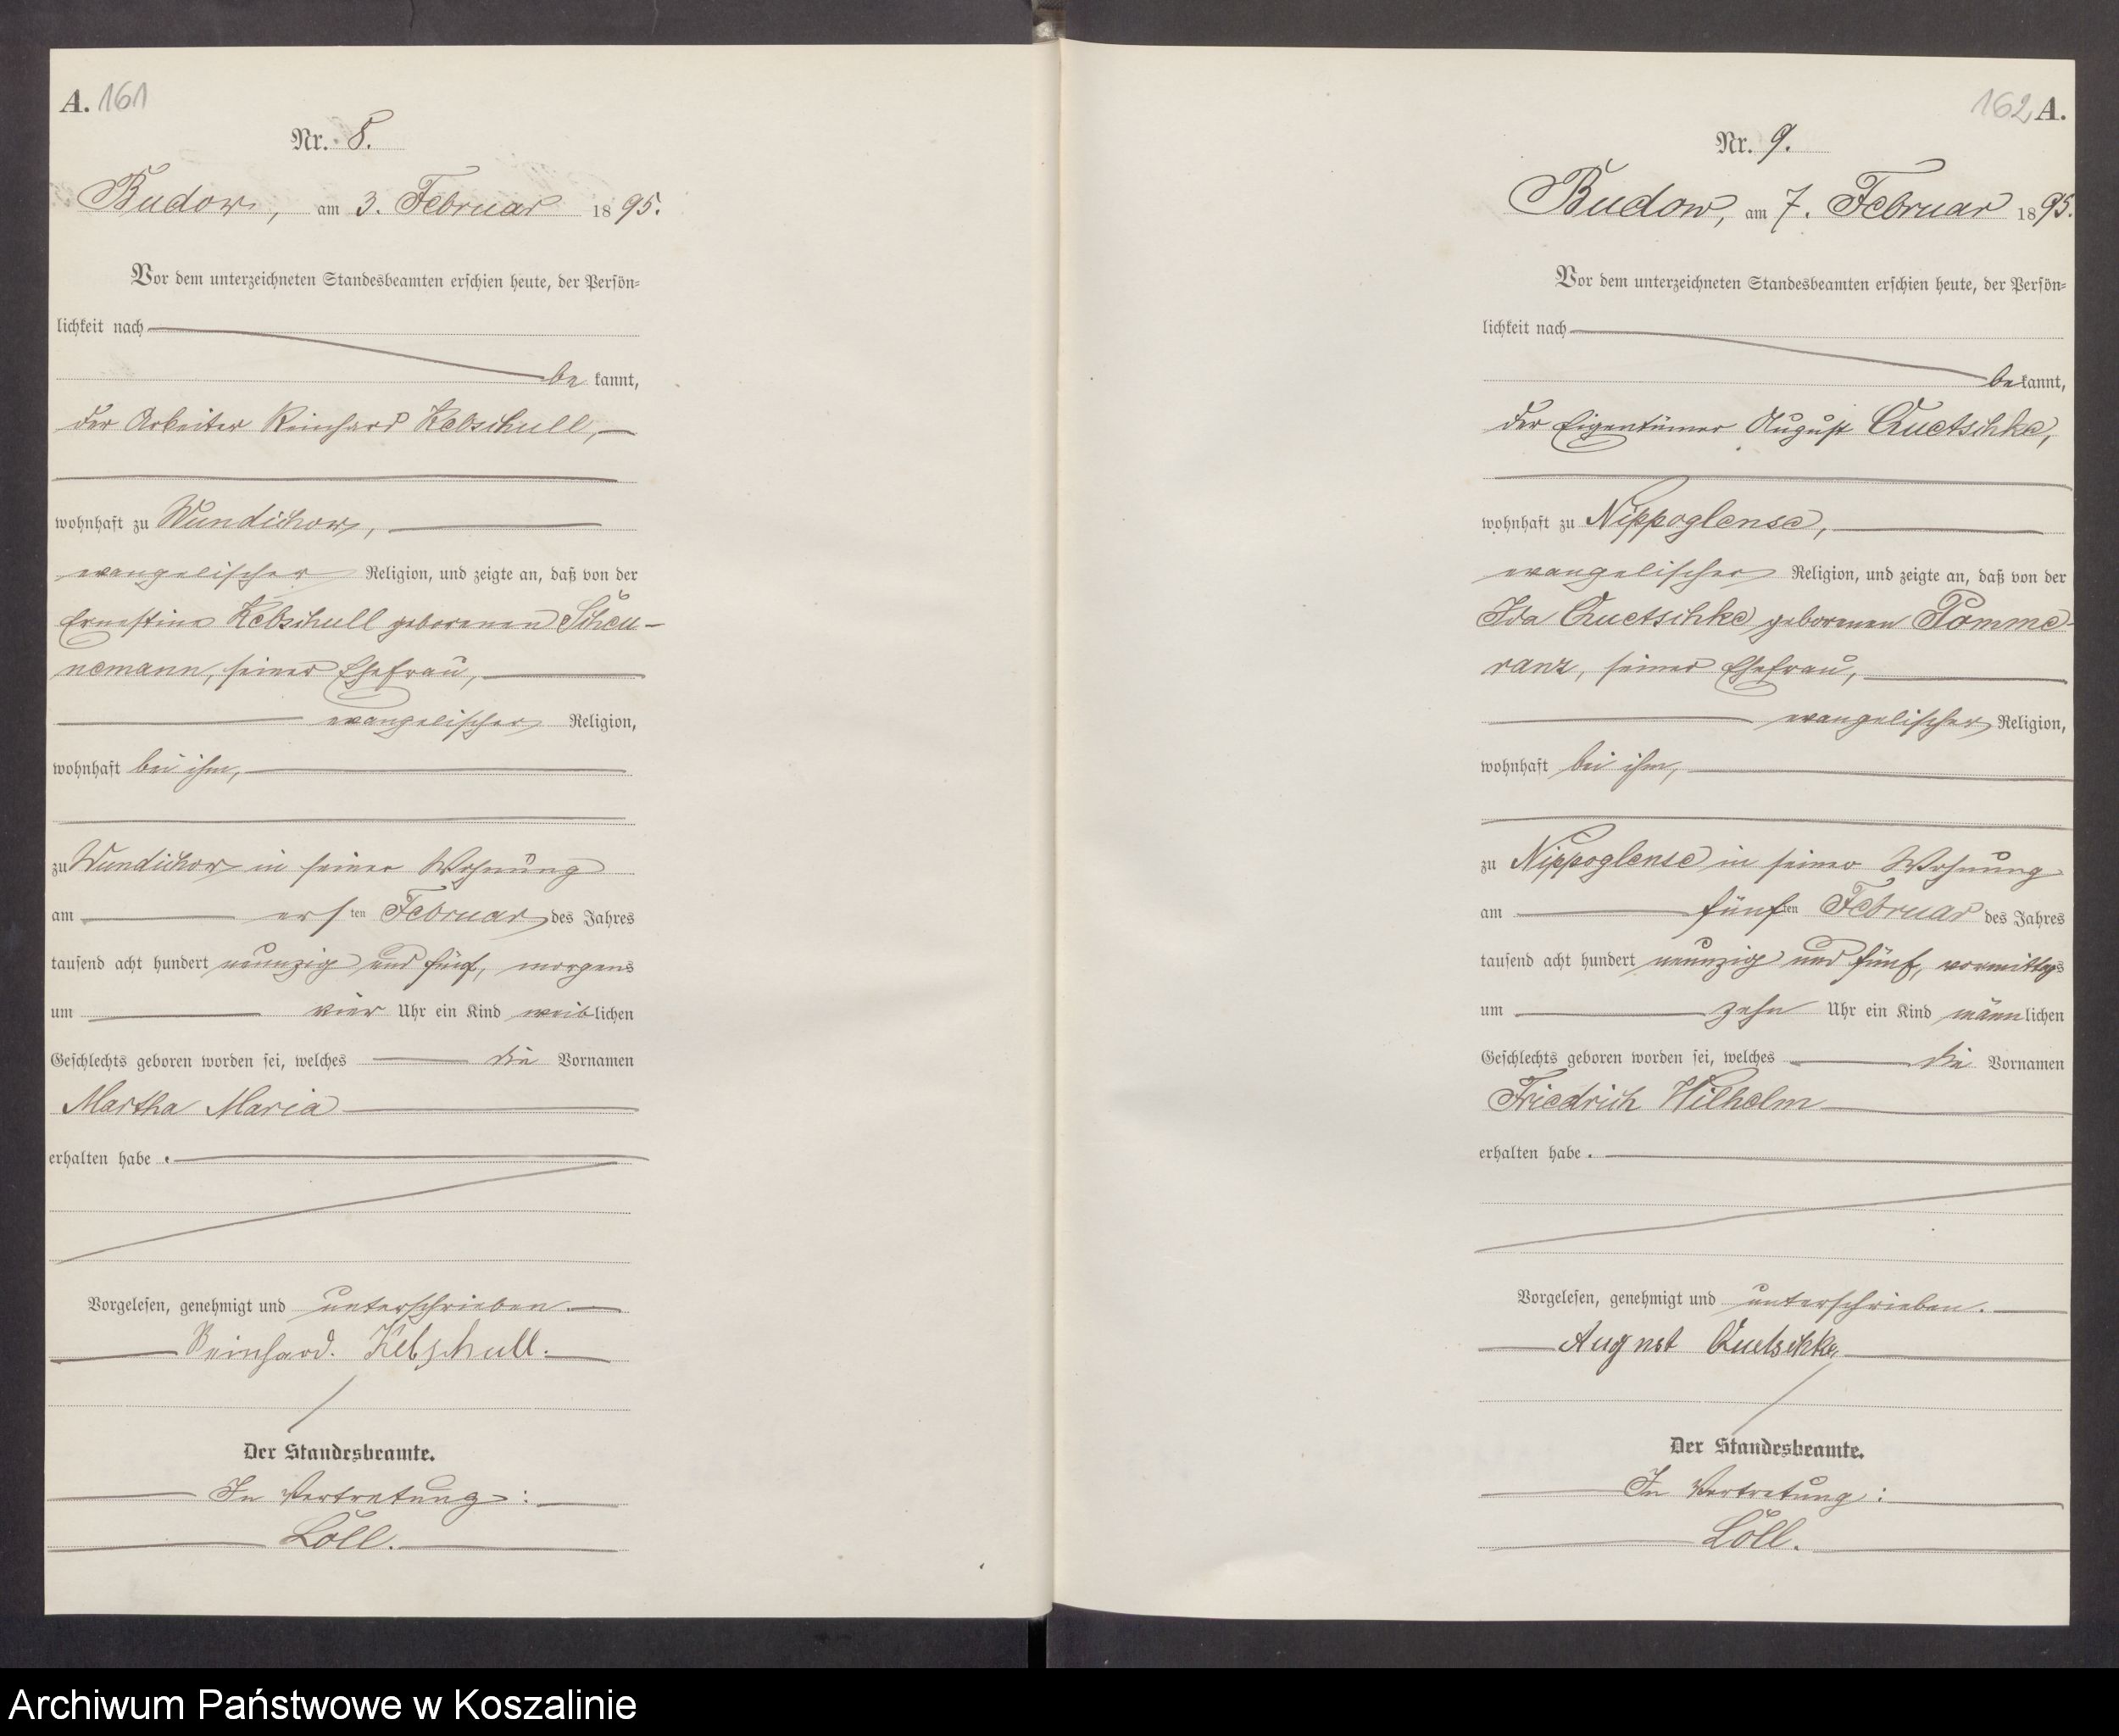 A. 161
Nr. 8.
Budow, am 3. Februar 1895.
Vor dem unterzeichneten Standesbeamten erschien heute, der Persön-
lichkeit nach
be kannt,
der Arbeiter Reinhard Kebschull,
wohnhaft zu Wundichow,
evangelischer Religion, und zeigte an, daß von der
Ernestine Kebschull geborenen Scheu-
nemann, seiner Ehefrau,
evangelischer Religion,
wohnhaft bei ihm,
zu Wundichow in seiner Wohnung
am ersten Februar des Jahres
tausend acht hundert neunzig und fünf, morgens
um vier Uhr ein Kind weiblichen
Geschlechts geboren worden sei, welches die Vornamen
Martha Maria
erhalten habe.
Vorgelesen, genehmigt und unterschrieben.
Reinhard. Kebschull.
Der Standesbeamte.
In Vertretung:
Löll.
162 A.
Nr. 9.
Budow, am 7. Februar 1895.
Vor dem unterzeichneten Standesbeamten erschien heute, der Persön-
lichkeit nach
bekannt,
der Eigentümer August Quetschke,
wohnhaft zu Nippoglense,
evangelischer Religion, und zeigte an, daß von der
Ida Quetschke geborenen Pomme-
ranz, seiner Ehefrau,
evangelischer Religion,
wohnhaft bei ihm,
zu Nippoglense in seiner Wohnung
am fünften Februar des Jahres
tausend acht hundert neunzig und fünf, vormittags
um zehn Uhr ein Kind männlichen
Geschlechts geboren worden sei, welches die Vornamen
Friedrich Wilhelm
erhalten habe.
Vorgelesen, genehmigt und unterschrieben.
August Quetschke
Der Standesbeamte.
In Vertretung:
Löll.
Archiwum Państwowe w Koszalinie